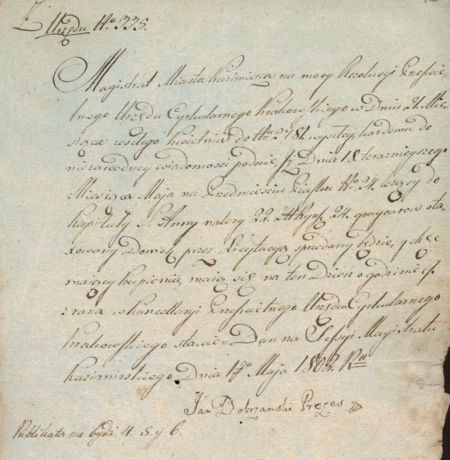 Z Urzędu Nro 335.
Magistrat Miasta Kazimierza na mocy Rezolucji Prześwie-
tnego Urzędu Cyrkularnego Krakowskiego w Dniu 21. Mie-
siąca zeszłego Kwietnia do Nro 2781. wyszłey każdemu do
niezawodney wiadomości podaie, iż Dnia 18 teraznieyszego
Miesiąca Maja na Przedmieściu Piasku Nro 24. leżący do
Kapituły S. Anny należy 22. 24. graycarów ota-
xowany Domek, przez licytacyą sprzedany będzie, y chęć
maiący kupienia, maią się na ten Dzień o godzinie 9.
z rana w Kancellaryi Prześwietnego Urzędu Cyrkularnego
Krakowskiego stawić Dan na Sessyi Magistratu
Kazimirskiego Dnia Maja 1803. Ru
Jan Dobrzanski Prezes
Publikata ma bydź 4. 5. y 6.